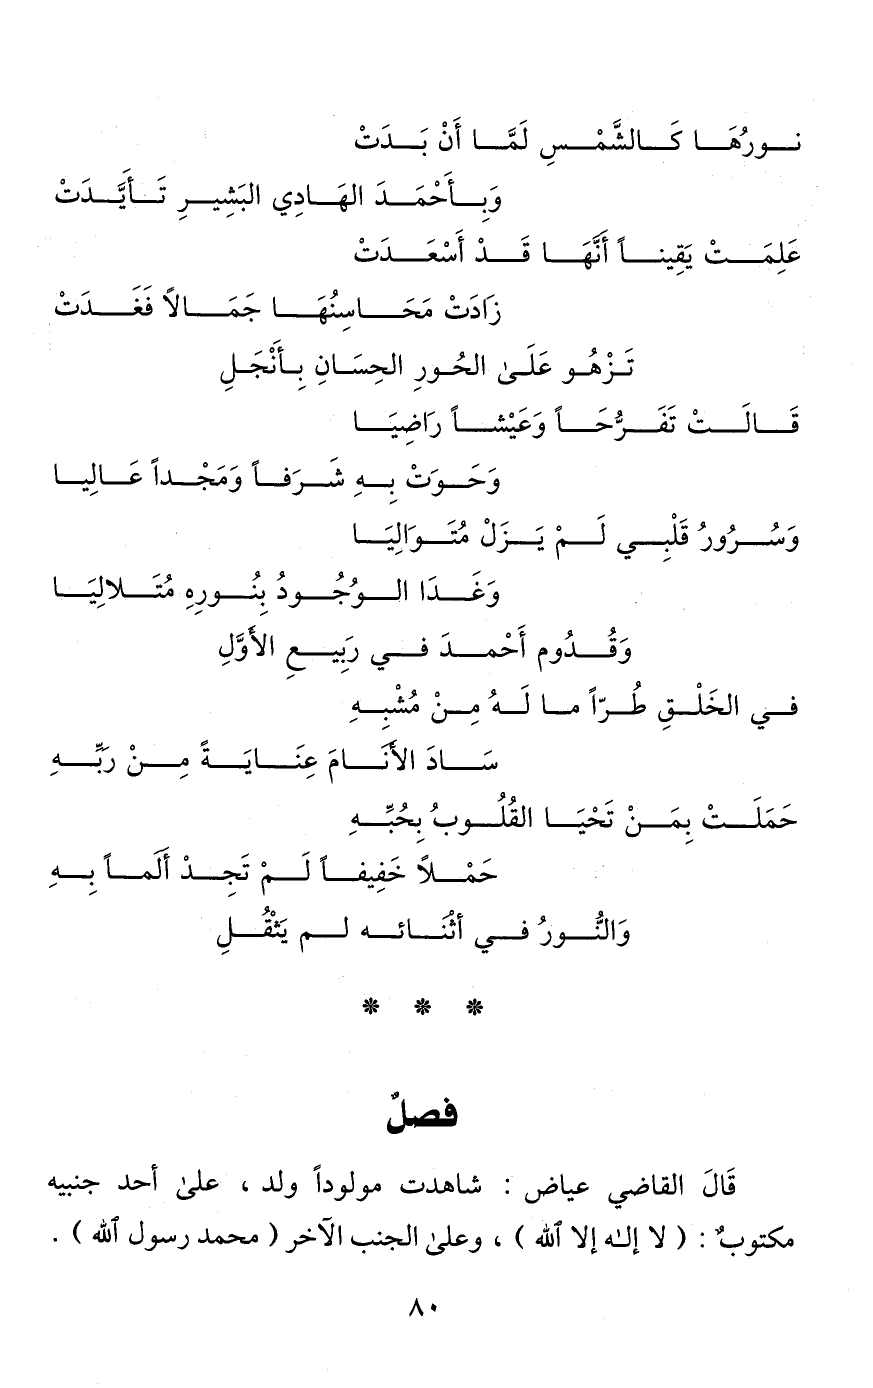 نورُهَا كَالشَّمْسِ لَمَّا أَنْ بَدَتْ
وَبِأَحْمَدَ الهَادِي البَشِيرِ تَأَيَّدَتْ
عَلِمَتْ يَقِيناً أَنَّهَا قَدْ أَسْعَدَتْ
زَادَتْ مَحَاسِنُهَا جَمَالاً فَغَدَتْ
تَزْهُو عَلَىٰ الحُورِ الحِسَانِ بِأَنْجَلِ
قَالَتْ تَفَرُّحَاً وَعَيْشاً رَاضِيَا
وَحَوَتْ بِهِ شَرَفاً وَمَجْداً عَالِيا
وَسُرُورُ قَلْبِي لَمْ يَزَلْ مُتَوَالِيَا
وَغَدَا الوُجُودُ بِنُورِهِ مُتَلالِيَا
وَقُدُوم أَحْمدَ في رَبِيعِ الأَوَّلِ
في الخَلْقِ طُرّاً ما لَهُ مِنْ مُشْبِهِ
سَادَ الأَنَامَ عِنَايَةً مِنْ رَبِّهِ
حَمَلَتْ بِمَنْ تَحْيَا القُلُوبُ بِحُبِّهِ
حَمْلاً خَفِيفاً لَمْ تَجِدْ أَلَماً بِهِ
وَالنُّورُ في أثْنَائه لم يَثْقُلِ
* * *
فصلٌ
قَالَ القاضي عياض : شاهدت مولوداً ولد ، علىٰ أحد جنبيه
مكتوبٌ : ( لا إلـٰه إلا ٱلله ) ، وعلىٰ الجنب الآخر ( محمد رسول ٱلله ) .
٨٠